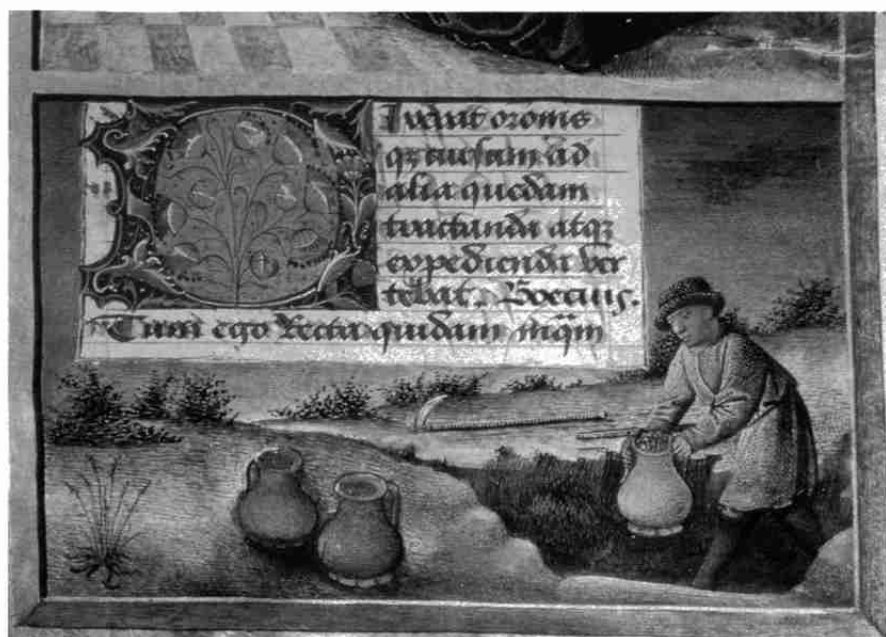 DIxerat oronis
qz cursum ad
alia quedam
tractanda atqz
expedienda ver
tebat. Boecius.
Tum ego Recta quidam inq̃m